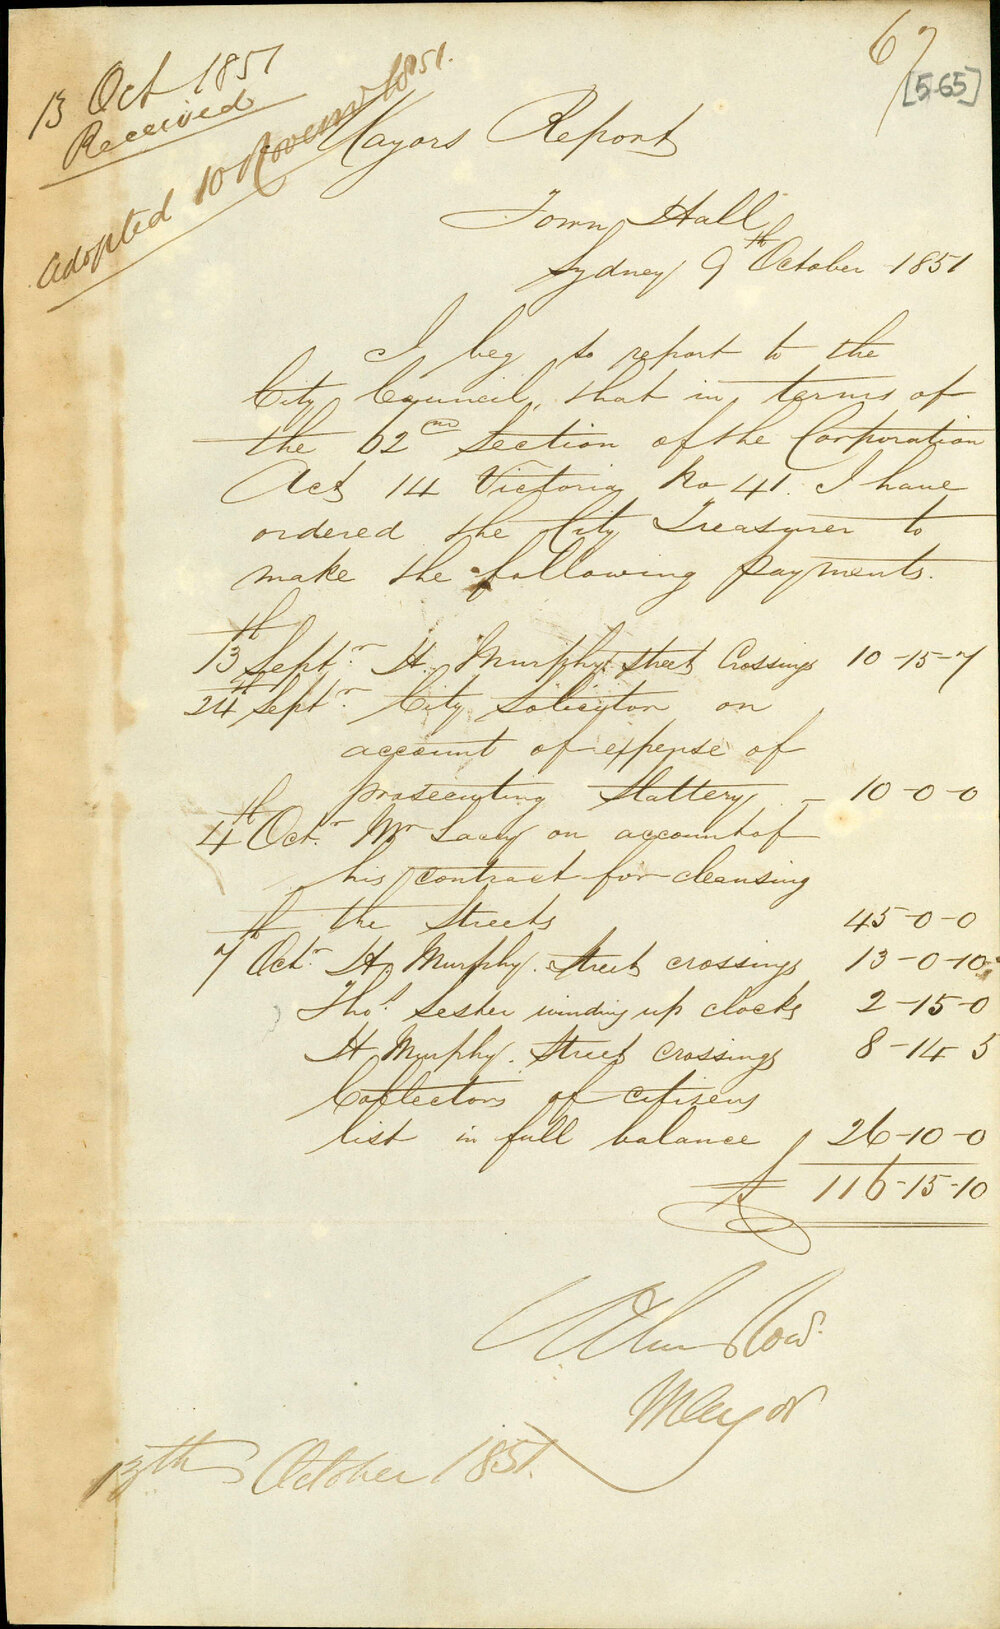 67
[565]
13 Oct 1851
Received
adopted 10 November 1851.
Mayors Report
Town Hall
Sydney 9th October 1851
I beg to report to the
City Council, that in terms of
the 62nd Section of the Corporation
Act 14 Victoria No 41. I have
ordered the City Treasurer to
make the following payments.
13th Septr. H. Murphy Street Crossings 10-15-7
24th Septr. City Solicitor on
account of expense of
prosecuting Slattery - 10-0-0
4th Octr. Mr Lacey on account of
his contract for cleansing
the Streets 45-0-0
7th Octr. H Murphy. Street crossings 13-0-10
Thos. Lester winding up clocks 2-15-0
H Murphy. Street crossings 8-14-5
Collectors of citizens
list in full balance 26-10-0
£ 116-15-10
Mayor
13th October 1851.